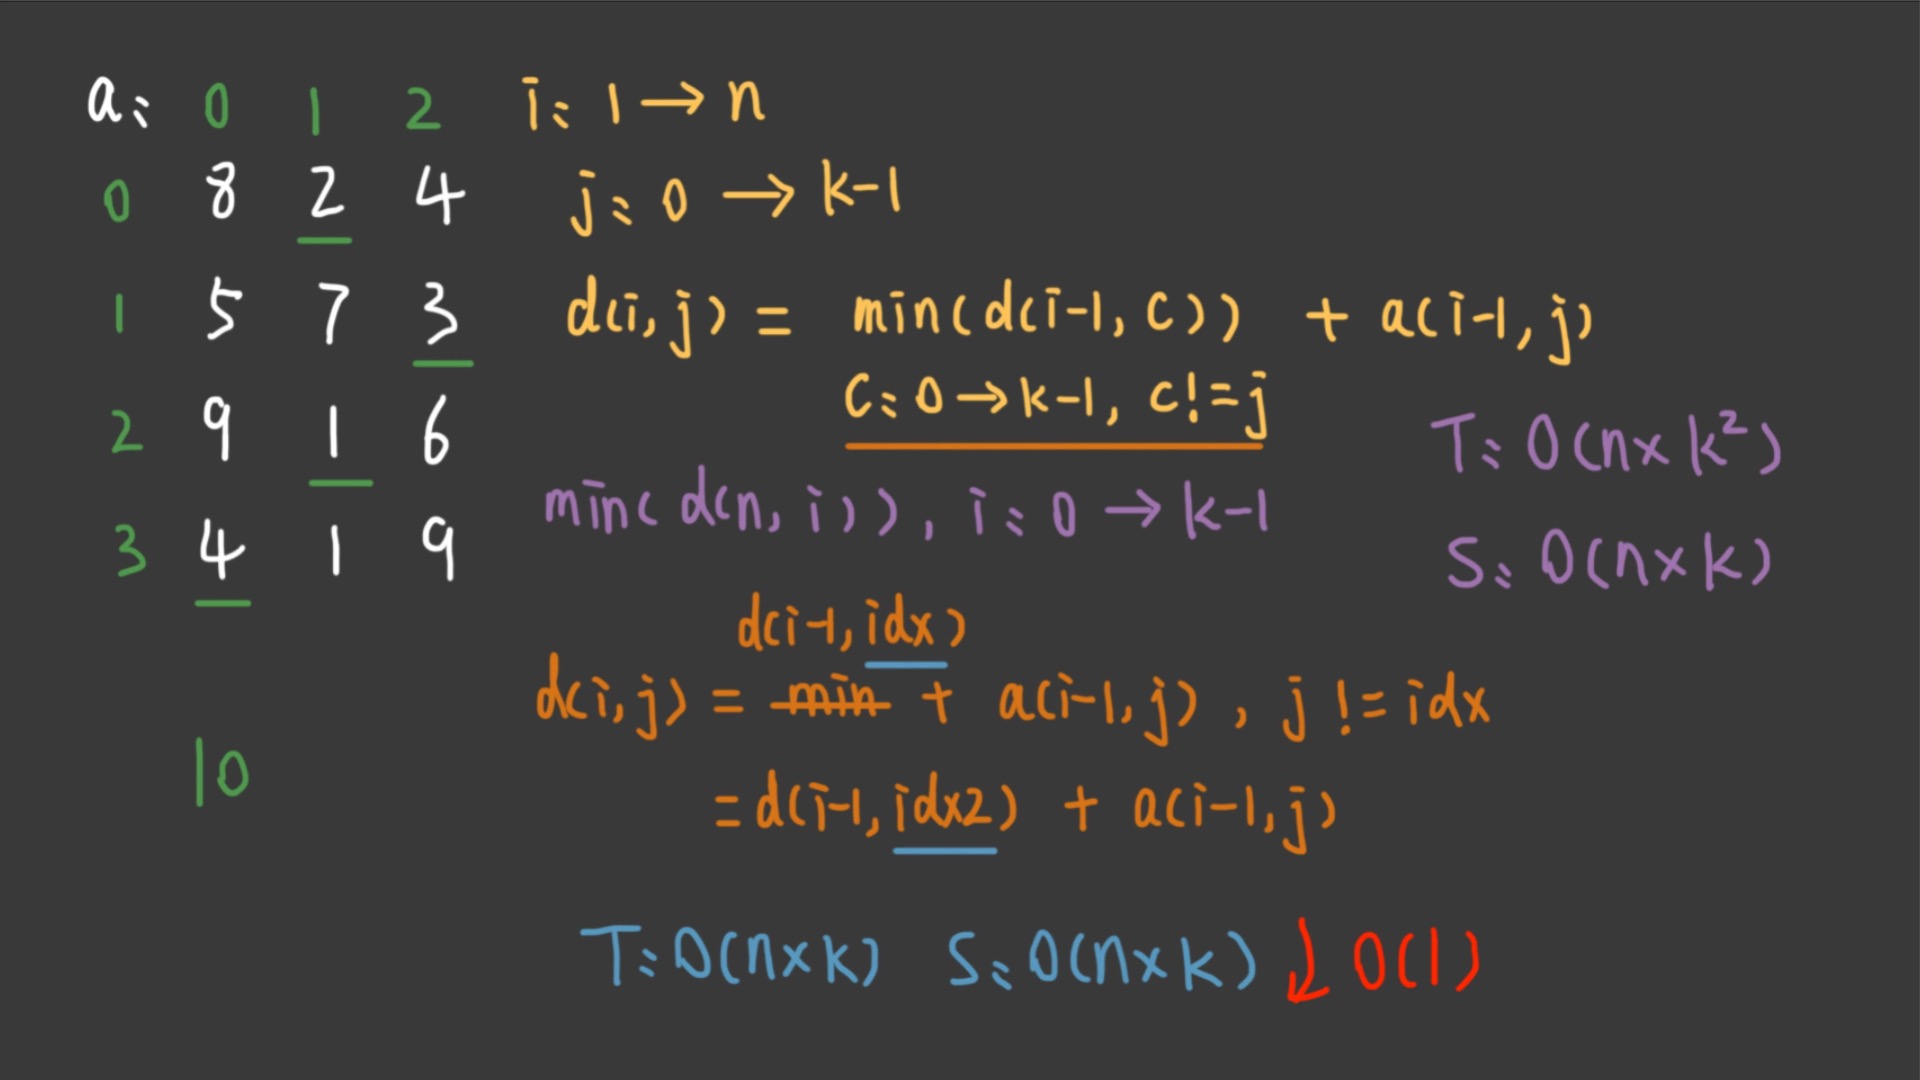 a: 0 1 2
0 8 2 4
1 5 7 3
2 9 1 6
3 4 1 9
10
i: 1 → n
j: 0 → k-1
d(i, j) = min(d(i-1, c)) + a(i-1, j)
c: 0 → k-1, c != j
min(d(n, i)), i: 0 → k-1
T: O(n×k²)
S: O(n×k)
d(i-1, idx)
d(i, j) = min + a(i-1, j), j != idx
= d(i-1, idx2) + a(i-1, j)
T: O(n×k) S: O(n×k) ↓ O(1)